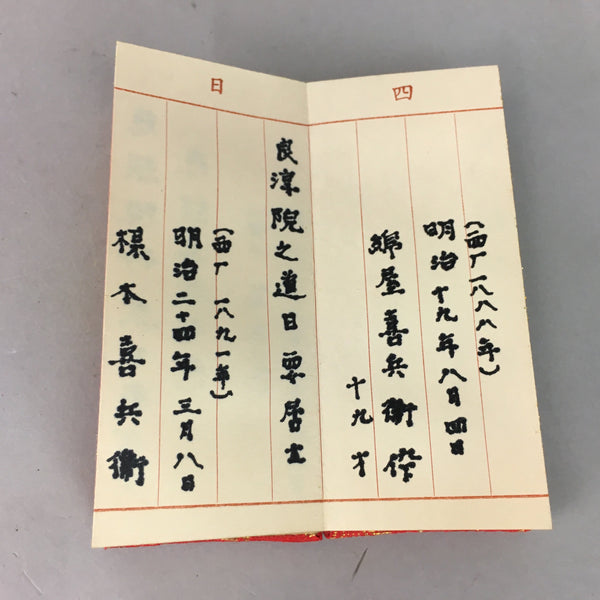 四日
(西厂 一八八八年)
明治十九年八月四日
綿屋善兵衛伜
十九才
良淳院之道日要居士
(西厂 一八九一年)
明治二十四年三月八日
本喜兵衛